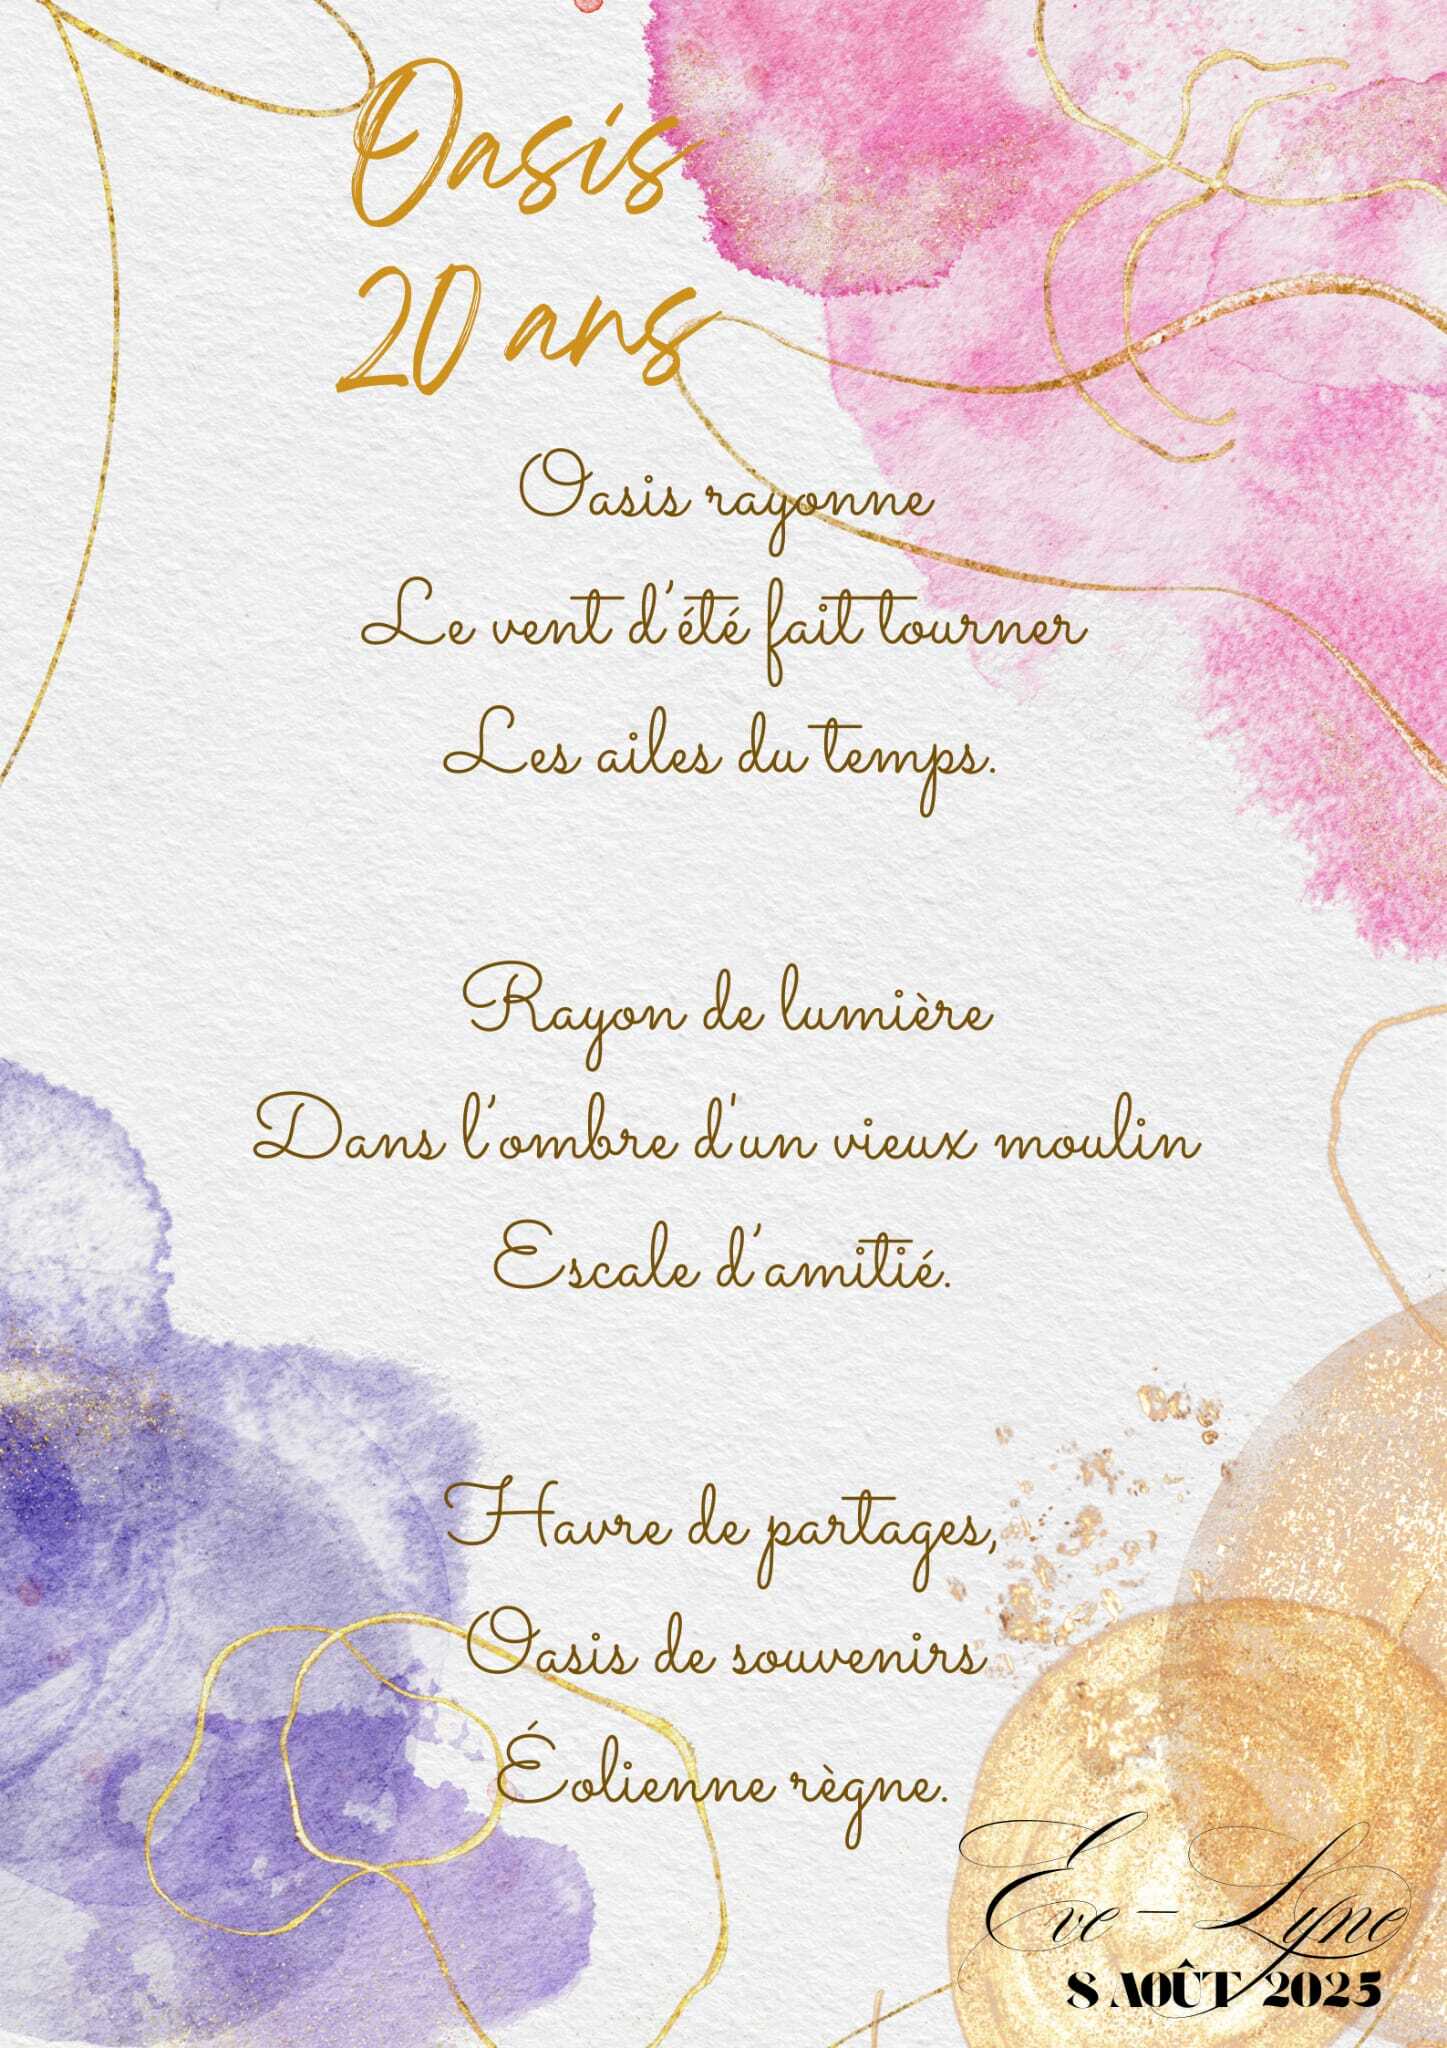 Oasis
20 ans
Oasis rayonne
Le vent d'été fait tourner
Les ailes du temps.
Rayon de lumière
Dans l'ombre d'un vieux moulin
Escale d'amitié.
Havre de partages,
Oasis de souvenirs
Éolienne règne.
Eve-Lyne
8 AOÛT 2025